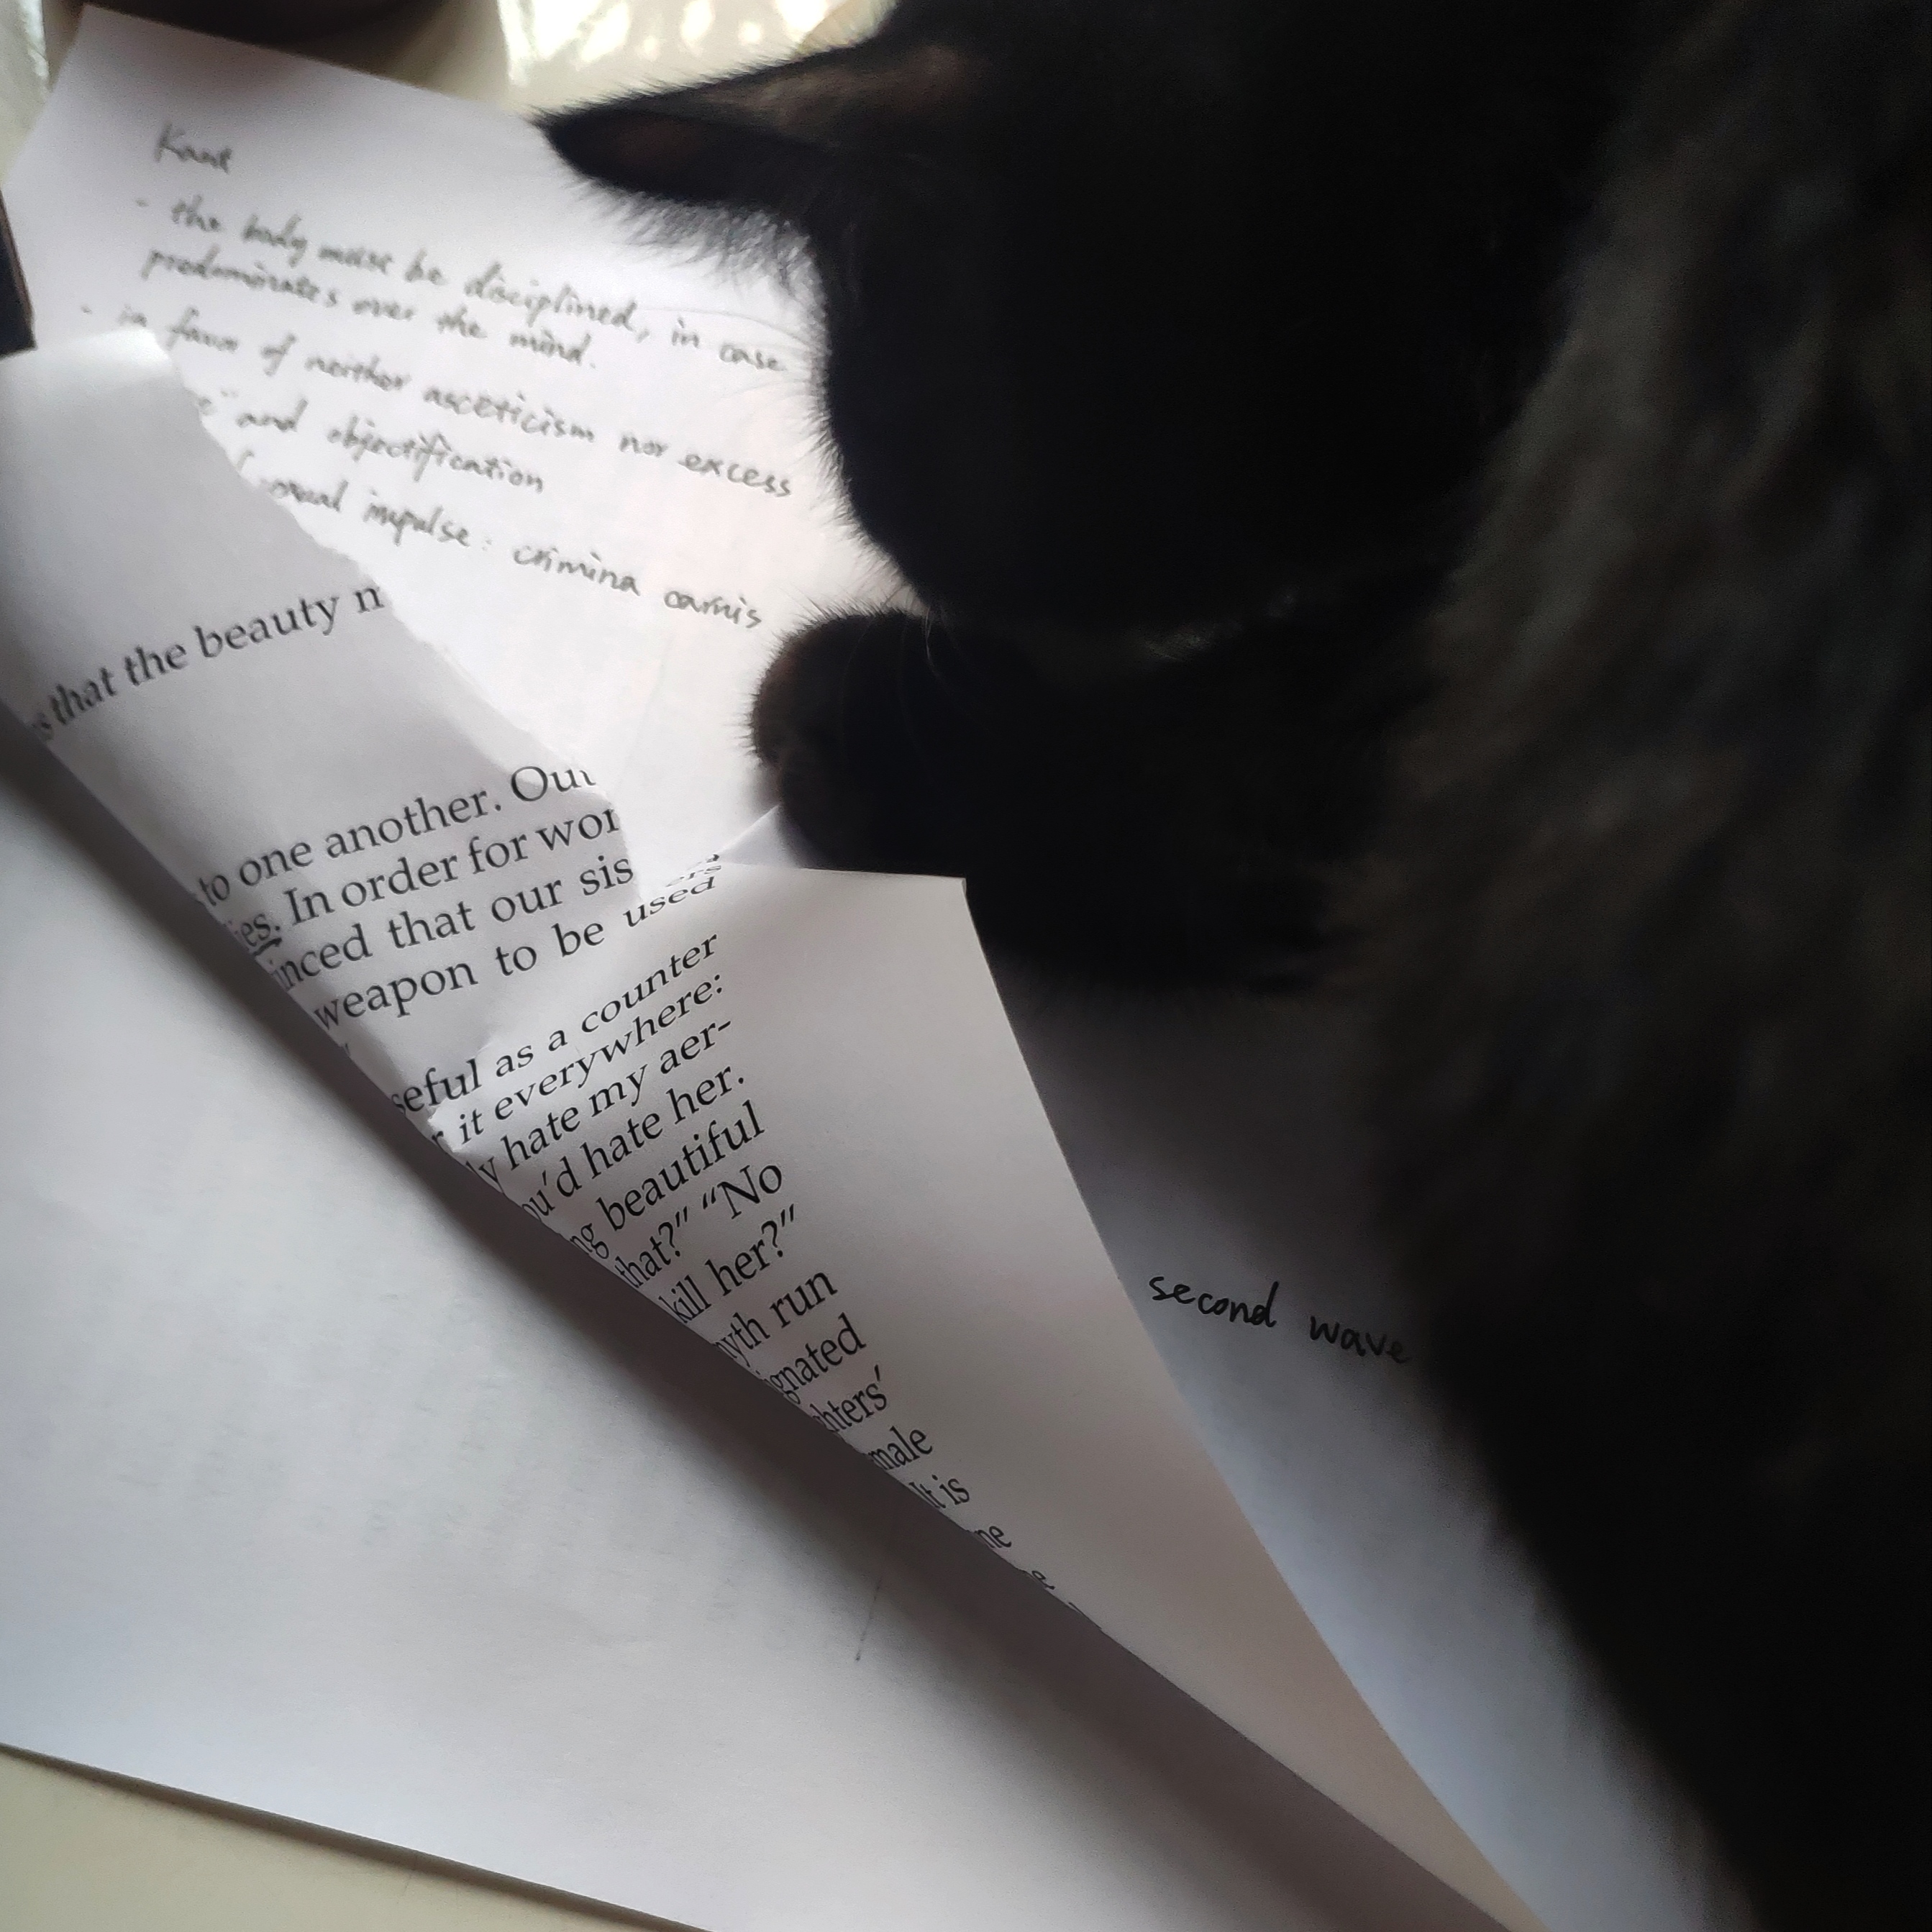 Kant
- the body must be disciplined, in case
predominates over the mind.
- in favor of neither asceticism nor excess
e" and objectification
sexual impulse: crimina carnis
s that the beauty n
to one another. Our
es. In order for wor
inced that our sis
weapon to be used
seful as a counter
r it everywhere:
ly hate my aer-
ou'd hate her.
ng beautiful
that?" "No
kill her?"
myth run
ignated
ghters'
male
It is
ne
e
second wave